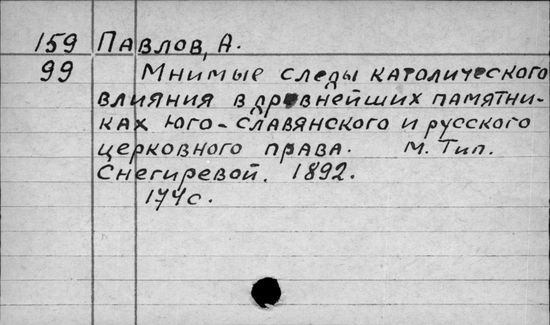 159 Павлов, А.
99 Мнимые следы католического
влияния в древнейших памятни-
ках юго-славянского и русского
церковного права. М. Тип.
Снегиревой. 1892.
174с.